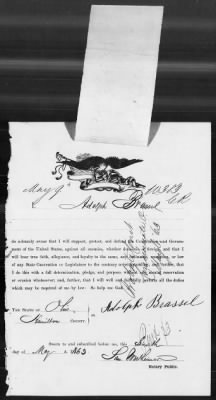 May 9
Adolph Brassel
do solemnly swear that I will support, protect, and defend the Constitution and Govern-
ment of the United States, against all enemies, whether domestic or foreign; and that I
will bear true faith, allegiance, and loyalty to the same, any ordinance, resolution, or law
of any State Convention or Legislature to the contrary notwithstanding; and further, that
I do this with a full determination, pledge, and purpose, without any mental reservation
or evasion whatsoever; and, further, that I will well and faithfully perform all the duties
which may be required of me by law. So help me God.
The State of Ohio
Adolph Brassel
Hamilton County
Sworn to and subscribed before me, this
day of May 1863
Notary Public.